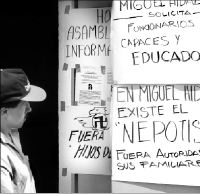 HO
ASAMBL
INFORMA
FUERA
HIJOS D
MIGUEL HIDA
SOLICITA
FUNCIONARIOS
CAPACES Y
EDUCADO
EN MIGUEL HID
EXISTE EL
"NEPOTIS
FUERA AUTORIDA
SUS FAMILIARE